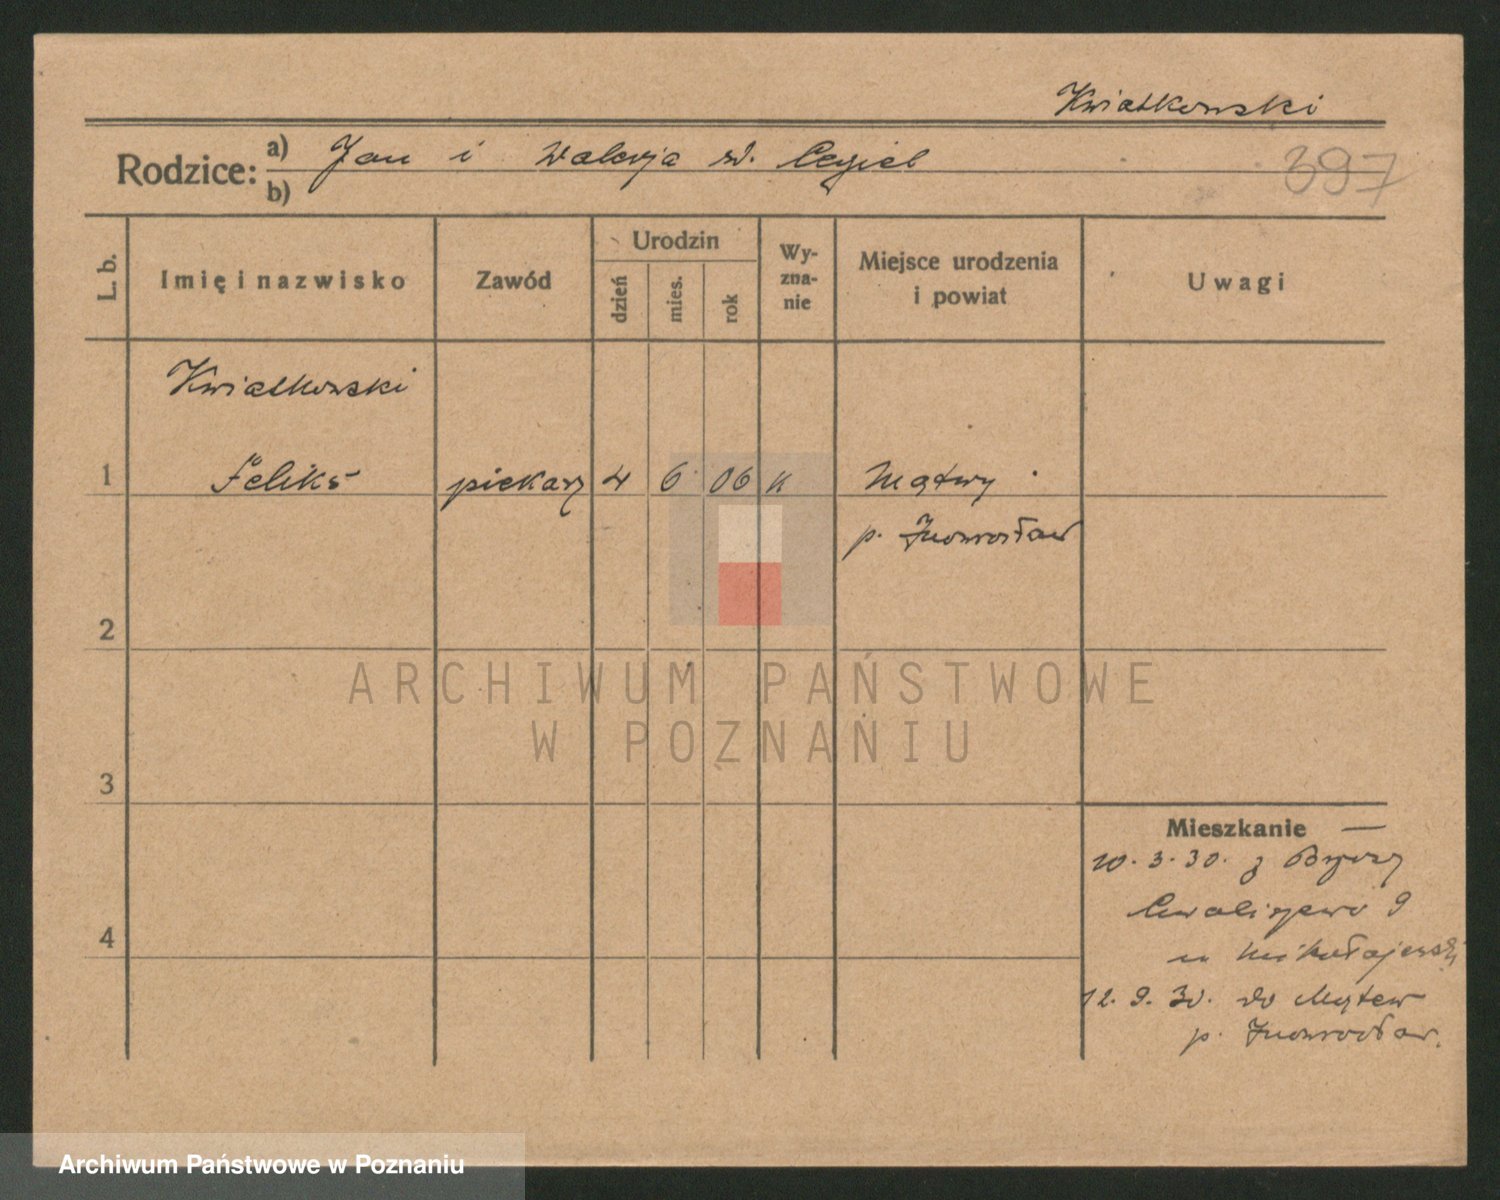 Kwiatkowski
Rodzice: a) Jan i Walerja z d. Cegiel
b)
397
L. b.
Imię i nazwisko
Zawód
Urodzin
dzień
mies.
rok
Wy-
zna-
nie
Miejsce urodzenia
i powiat
Uwagi
Kwiatkowski
1 Feliks piekarz 4 6 06 k Mątwy
p. Inowrocław
2
ARCHIWUM PAŃSTWOWE
W POZNANIU
3
Mieszkanie —
10. 3. 30. z
4 Chwaliszewo 9
u Mikołajewski
12. 9. 30. do Mątew
p. Inowrocław.
Archiwum Państwowe w Poznaniu